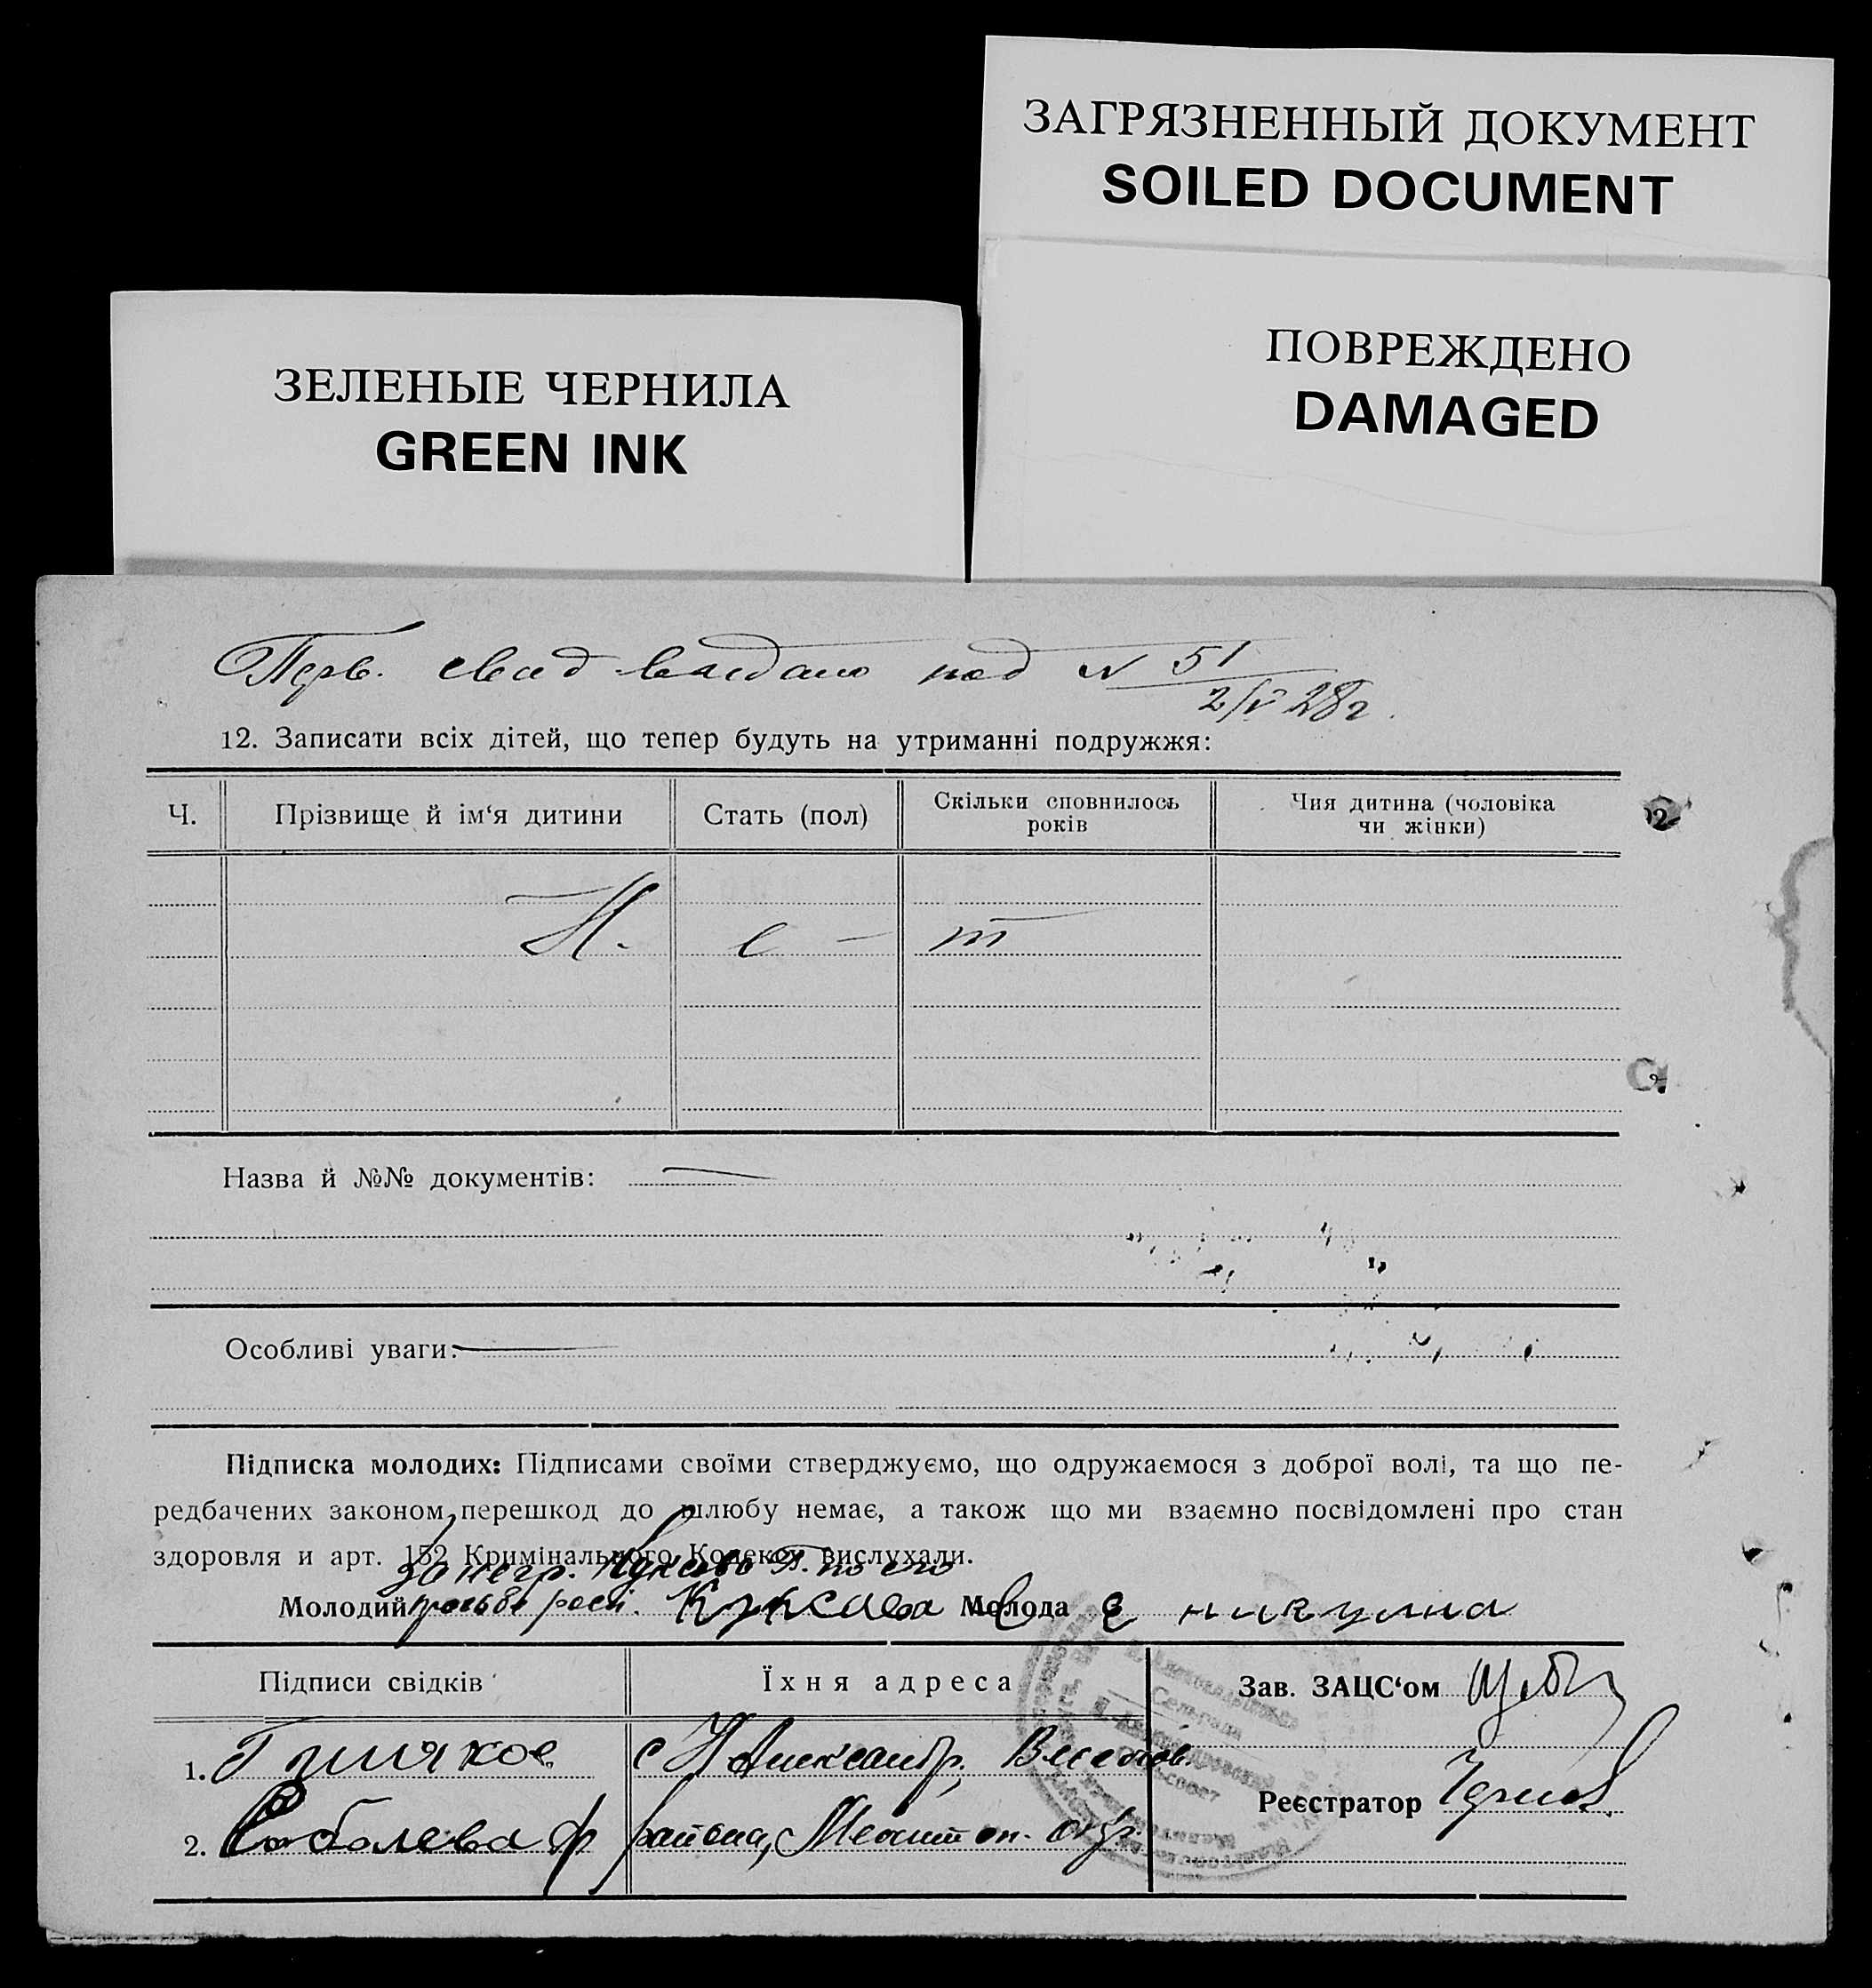 ЗАГРЯЗНЕННЫЙ ДОКУМЕНТ
SOILED DOCUMENT
ПОВРЕЖДЕНО
DAMAGED
ЗЕЛЕНЫЕ ЧЕРНИЛА
GREEN INK
Перв. свид выдано под N 51
2/V 28г.
12. Записати всіх дітей, що тепер будуть на утриманні подружжя:
Ч. Прізвище й ім‘я дитини Стать (пол) Скільки сповнилось років Чия дитина (чоловіка чи жінки)
Н. е – т
Назва й №№ документів: —
Особливі уваги: —
Підписка молодих: Підписами своїми стверджуємо, що одружаємося з доброї волі, та що пе-
редбачених законом перешкод до шлюбу немає, а також що ми взаємно посвідомлені про стан
здоровля и арт. 152 Кримінального Кодексу вислухали.
За негр. по его
Молодий просьбе расп. Молода Никулина
Підписи свідків Їхня адреса Зав. ЗАЦС‘ом
1. с Н Александр,
2. Соболева ф района, Мелитоп. окр.
Реєстратор